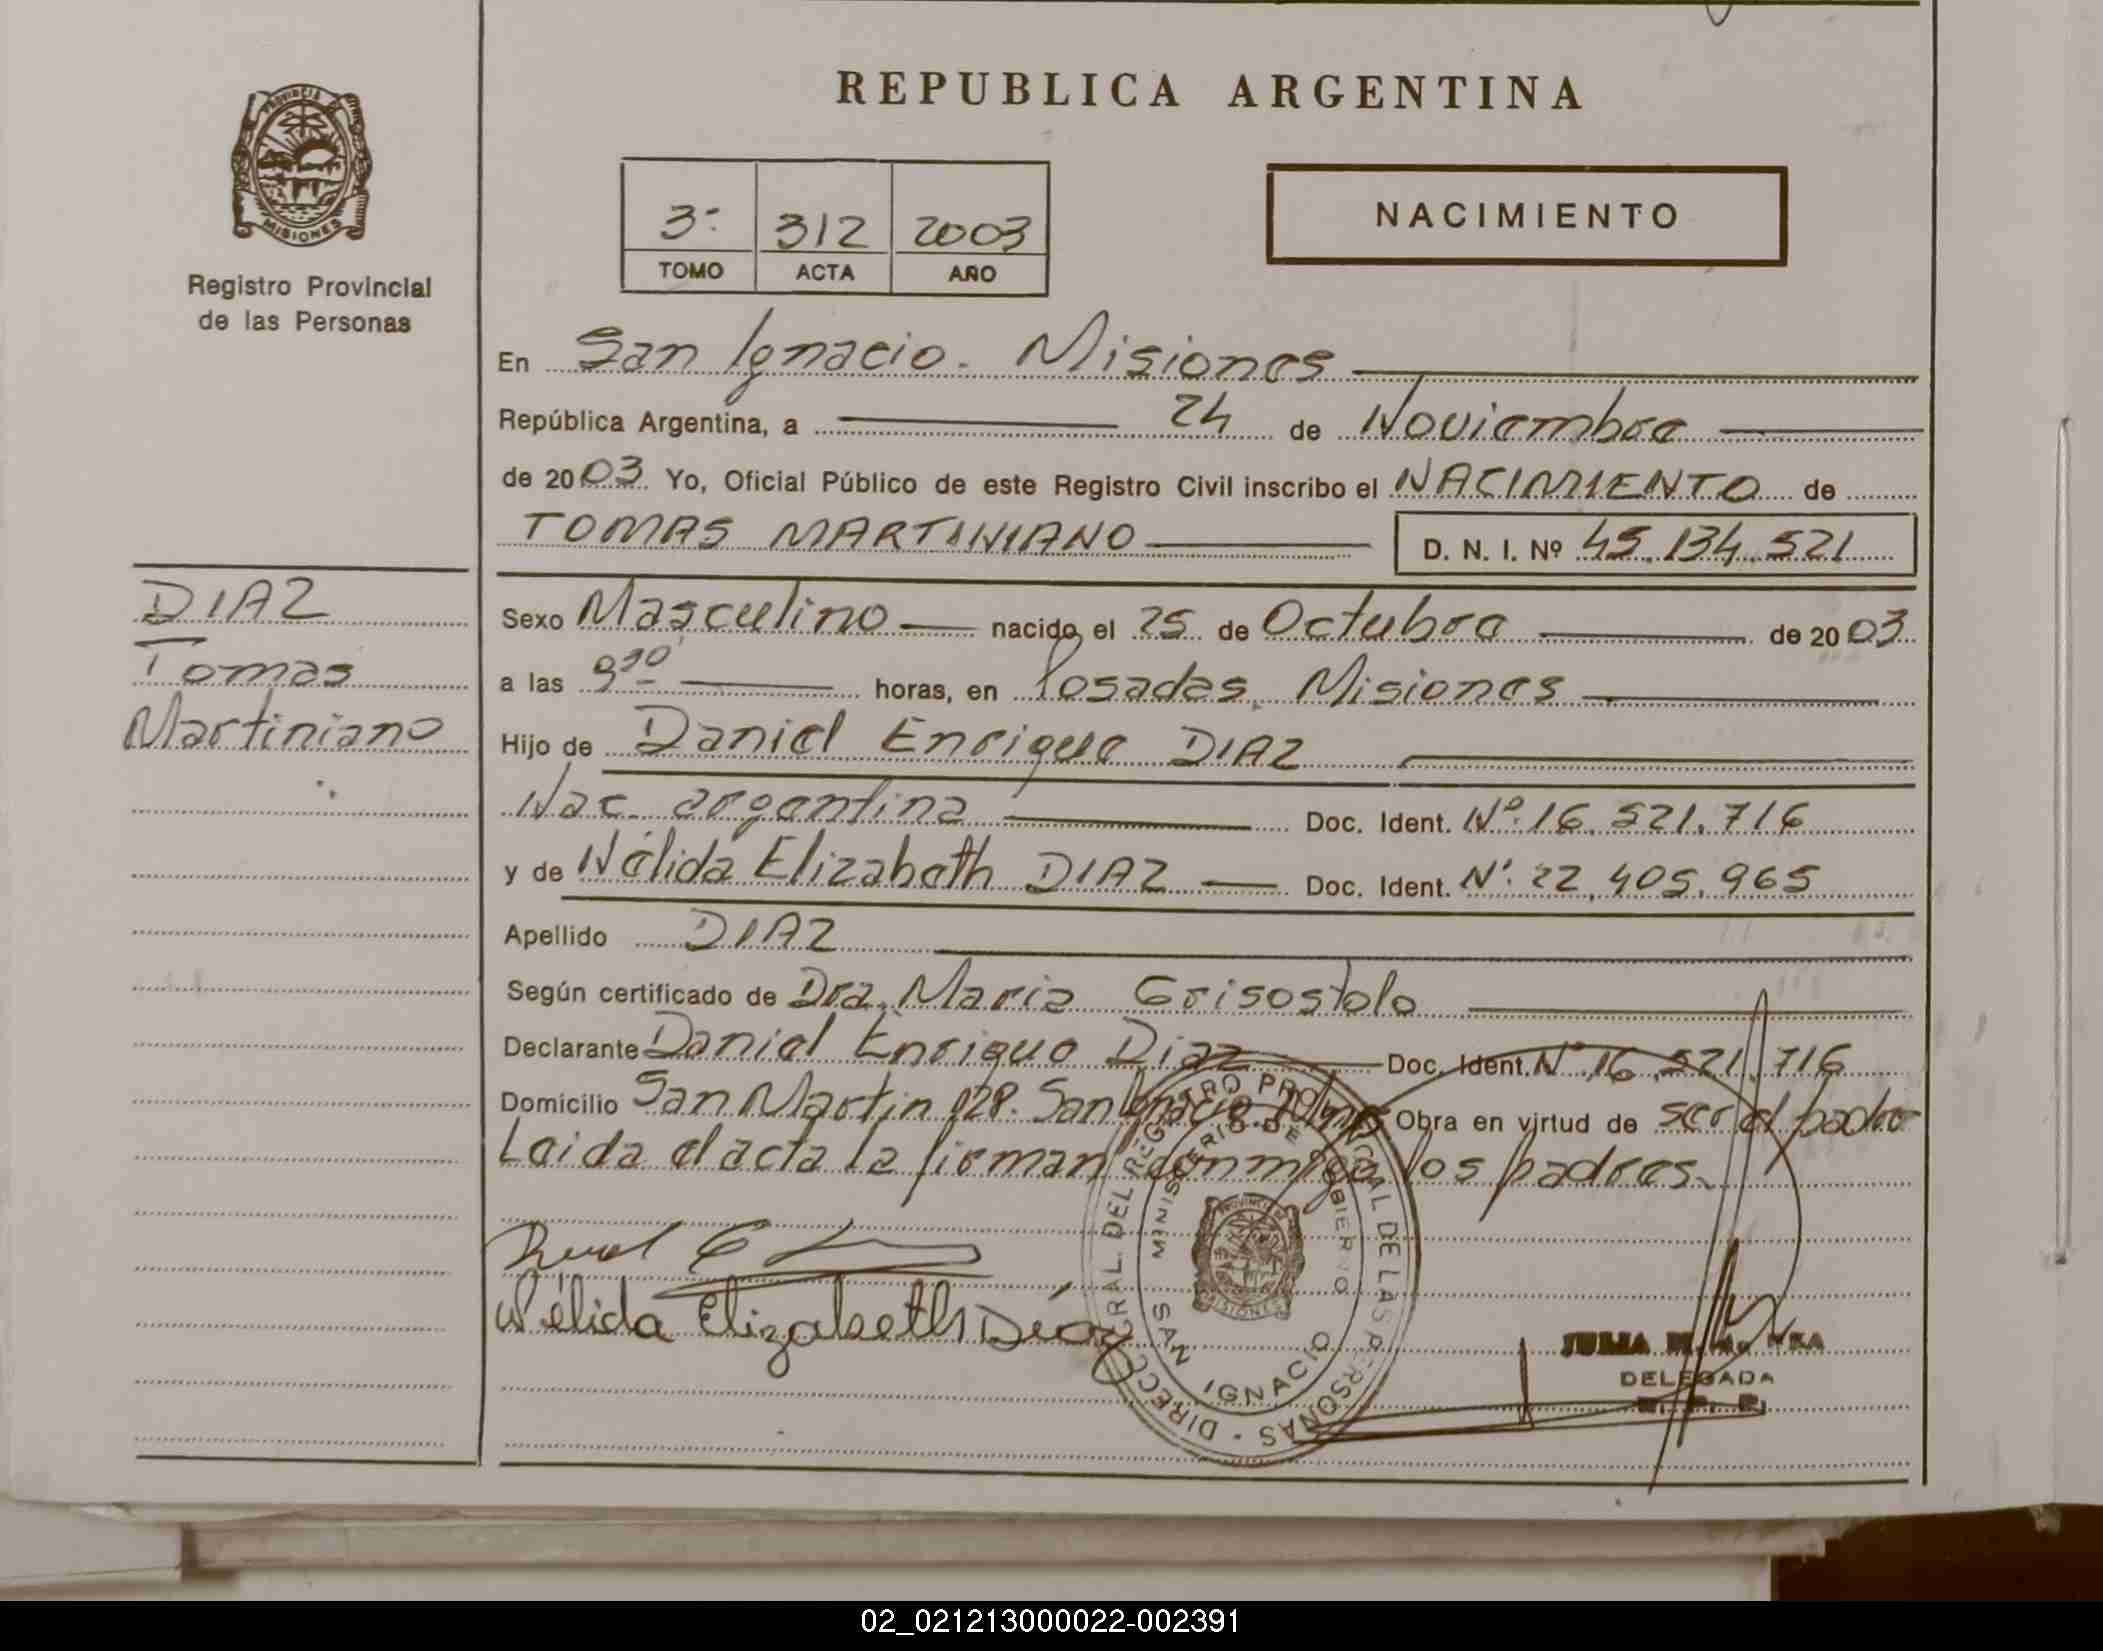 REPUBLICA ARGENTINA
PROVINCIA DE
MISIONES
Registro Provincial
de las Personas
3º 312 2003
TOMO ACTA AÑO
NACIMIENTO
En San Ignacio. Misiones
República Argentina, a 24 de Noviembre
de 2003 Yo, Oficial Público de este Registro Civil inscribo el NACIMIENTO de
TOMAS MARTINIANO D. N. I. Nº 45.134.521
DIAZ
Tomas
Martiniano
Sexo Masculino nacido el 25 de Octubre de 2003
a las 9 30 horas, en Posadas, Misiones
Hijo de Daniel Enrique DIAZ
Nac. argentina Doc. Ident. Nº 16.521.716
y de Nélida Elizabeth DIAZ Doc. Ident. Nº 22.405.965
Apellido DIAZ
Según certificado de Dra. Maria Grisostolo
Declarante Daniel Enrique Diaz Doc. Ident. Nº 16.521.716
Domicilio San Martin 128. San Ignacio Mnes Obra en virtud de ser el padre
Leida el acta la firman conmigo los padres.
Nélida Elizabeth Díaz
DIRECC. GRAL. DEL REGISTRO PROVINCIAL DE LAS PERSONAS
MINISTERIO DE GOBIERNO
PROVINCIA DE
MISIONES
SAN IGNACIO
JULIA
DELEGADA
02_021213000022-002391